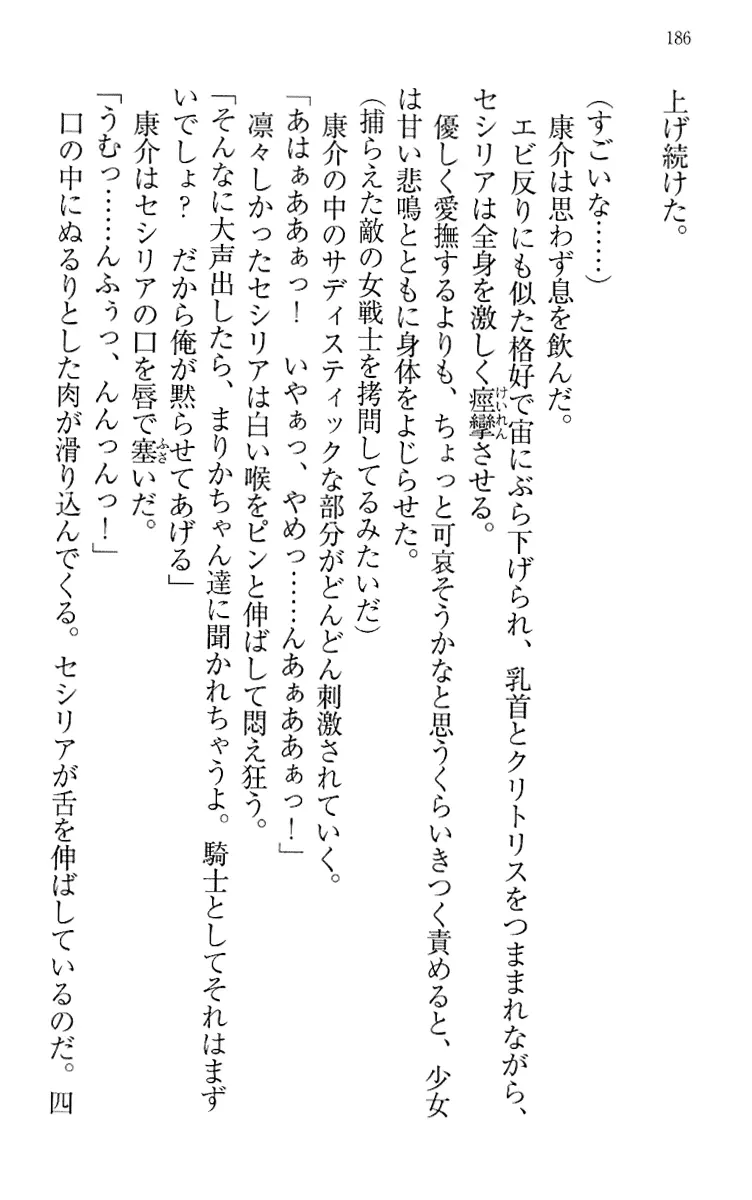 186
上げ続けた。
(すごいな……)
康介は思わず息を飲んだ。
エビ反りにも似た格好で宙にぶら下げられ、乳首とクリトリスをつままれながら、
セシリアは全身を激しく痙攣させる。
優しく愛撫するよりも、ちょっと可哀そうかなと思うくらいきつく責めると、少女
は甘い悲鳴とともに身体をよじらせた。
(捕らえた敵の女戦士を拷問してるみたいだ)
康介の中のサディスティックな部分がどんどん刺激されていく。
「あはぁああぁっ！　いやぁっ、やめっ……んあぁああぁっ！」
凛々しかったセシリアは白い喉をピンと伸ばして悶え狂う。
「そんなに大声出したら、まりかちゃん達に聞かれちゃうよ。騎士としてそれはまず
いでしょ？　だから俺が黙らせてあげる」
康介はセシリアの口を唇で塞いだ。
「うむっ……んふぅっ、んんっんっ！」
口の中にぬるりとした肉が滑り込んでくる。セシリアが舌を伸ばしているのだ。四